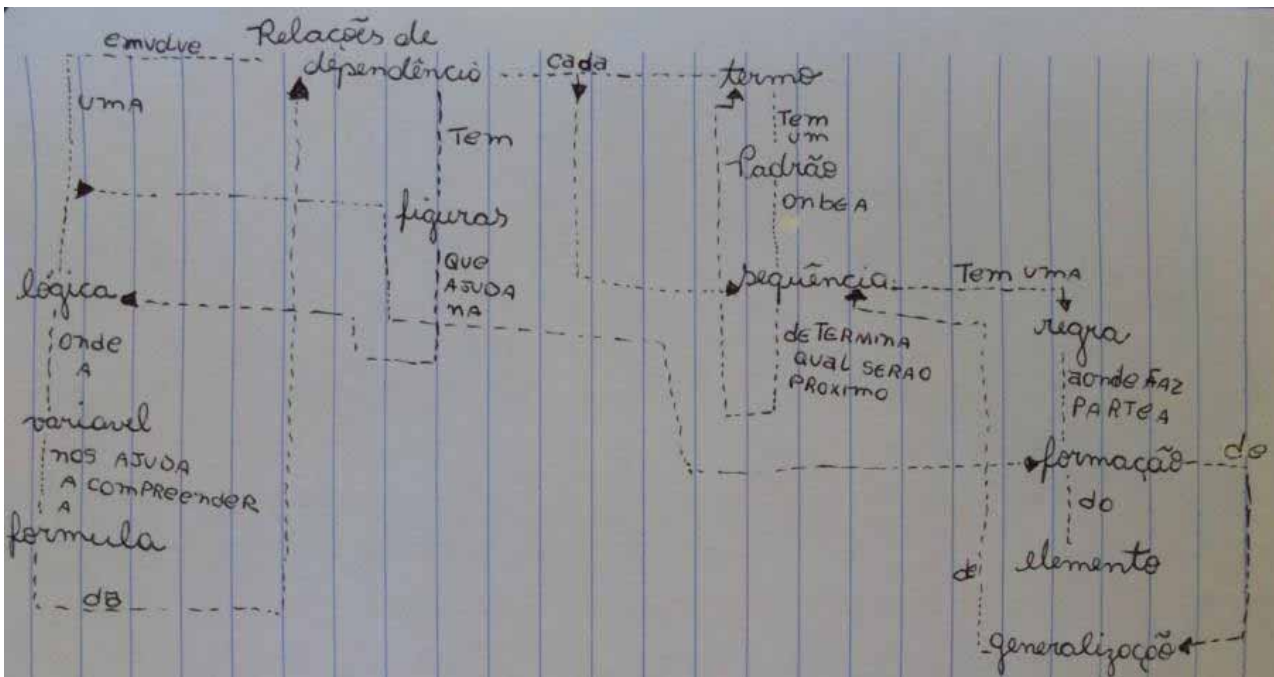 emvolve
Relações de
dependência
cada
termo
UMA
Tem
Tem
um
Padrão
onbe A
figuras
QUE
AJUDA
NA
sequência
Tem UMA
lógica
onde
A
regra
deTERMINA
QUAL SERAO
PROXIMO
aonde FAZ
PARTE A
variavel
nos AJUDA
A COMPREENDER
A
formação
de
do
formula
elemento
de
de
generalização